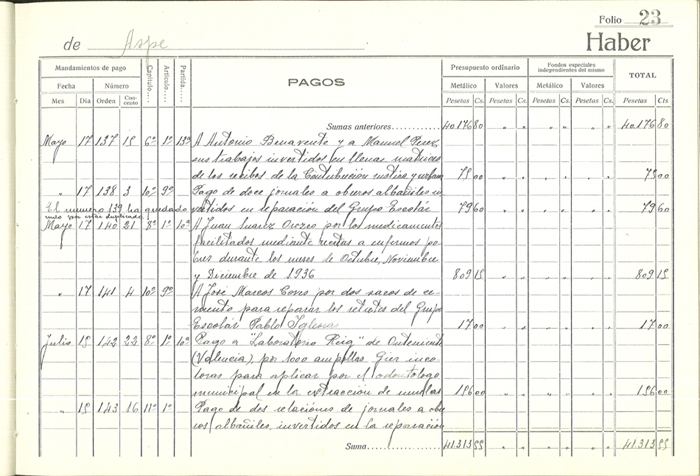 Folio 23
de Aspe Haber
Mandamientos de pago
Fecha Número
Mes Día Orden Concepto
Capítulo....
Artículo....
Partida....
PAGOS
Presupuesto ordinario
Metálico Valores
Pesetas Cs. Pesetas Cs.
Fondos especiales
independientes del mismo
Metálico Valores
Pesetas Cs. Pesetas Cs.
TOTAL
Pesetas Cts
Sumas anteriores... 40.176 80 40.176 80
Mayo 17 137 15 6º 1º 13º A Antonio Benavente y a Manuel Perez
sus trabajos invertidos en llenar matrices
de los recibos de la Contribución rustica y urbana 75 00 75 00
" 17 138 3 10º 9º Pago de doce jornales a obreros albañiles in
El numero 139 ha quedado vertidos en reparación del Grupo Escolar 79 60 79 60
nulo por estar duplicado
Mayo 17 140 21 8º 1º 10º A Juan Suarez por los medicamentos
facilitados mediante recetas a enfermos po
bres durante los meses de Octubre, Noviembre
y Diciembre de 1936 809 15 809 15
" 17 141 4 10º 9º A José Marcos por dos sacos de ce
mento para reparar los retretes del Grupo
Escolar Pablo Iglesias 17 00 17 00
Julio 15 142 22 8º 1º 10º Pago a "Laboratorio Reig" de Onteniente
(Valencia), por 1000 ampollas
para aplicar por el odontologo
municipal en la extracción de muelas 156 00 156 00
" 15 143 16 11º 1º Pago de dos relaciones de jornales a obre
ros albañiles, invertidos en la reparación
Suma.... 41.313 55 41.313 55